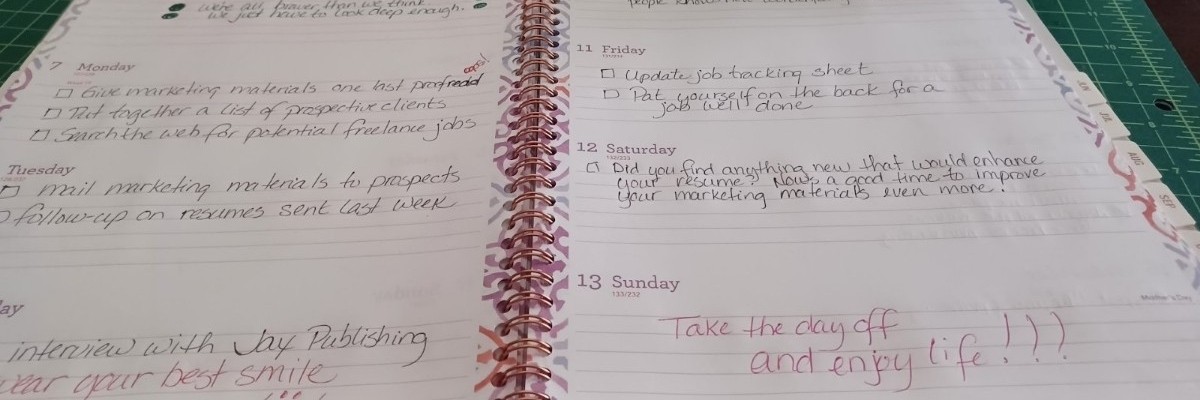 we're all braver than we think
we just have to look deep enough.
7 Monday
oops!
□ Give marketing materials one last profread
□ Put together a list of prospective clients
□ Search the web for potential freelance jobs
Tuesday
□ mail marketing materials to prospects
□ follow-up on resumes sent last week
ay
interview with Jay Publishing
wear your best smile
!!!
people
11 Friday
□ Update job tracking sheet
□ Pat yourself on the back for a
job well done
12 Saturday
□ Did you find anything new that would enhance
your resume? Now's a good time to improve
your marketing materials even more!
13 Sunday
133/232
Mother's Day
Take the day off
and enjoy life!!!
JUL
AUG
SEP